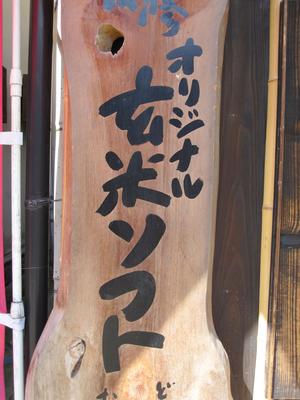 オリジナル
玄米ソフト